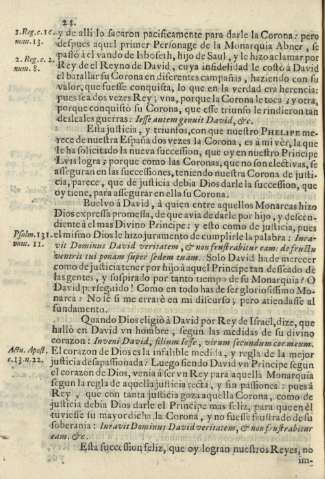 24.
2.Reg.c.10. y de alli lo sacaron pacificamente para darle la Corona: pero
num.13. despues aquel primer Personage de la Monarquia Abner, se
passò el vando de Isboseth, hijo de Saul, y le hizo aclamar por
2.Reg.c.2. Rey de el Reyno de David, cuya infidelidad le costò à David
num.8. el batallar su Corona en diferentes campañas, haziendo con su
valor, que fuesse conquista, lo que en la verdad era herencia:
pues seà dos vezes Rey; vna, porque la Corona le toca; y otra,
porque conquistò su Corona, que esse triunfo le rindieron tan
desleales guerras: Iesse autem genuit David, &c.
Esta justicia, y triunfos, con que nuestro PHELIPE me-
rece de nuestra España dos vezes la Corona, es à mi vèr, la que
le ha solicitado la nueva succession, que oy en nuestro Principe
LVIS logra; porque como las Coronas, que no son electivas, se
asseguran en las successiones, teniendo nuestra Corona de justi-
cia, parece, que de justicia debia Dios darle la succession, que
oy tiene, para assegurar en ella su Corona.
Buelvo à David, à quien entre aquellos Monarcas hizo
Dios expressa promessa, de que avia de darle por hijo, y descen-
diente à el mas Divino Principe; y esto como de justicia, pues
Psalm.131. el mismo Dios le hizo juramento de cumplirle la palabra: Iura-
num.11. vit Dominus David veritatem, & non frustrabitur eam: de fructu
ventris tui ponam super sedem tuam. Solo David ha de merecer
como de justicia tener por hijo à aquel Principe tan deseado de
las gentes, y suspirado por tanto tiempo de su Monarquia? O
David perseguido! Como en todo has de ser gloriosissimo Mo-
narca? No sè si me errarè en mi discurso; pero atiendasse al
fundamento.
Quando Dios eligiò à David por Rey de Israel, dize, que
hallò en David vn hombre, segun las medidas de su divino
corazon: Inveni David, filium Iesse, virum secundum cor meum.
Actu. Apost. El corazon de Dios es la infalible medida, y regla de la mejor
c.13.v.22. justicia desapassionada: Luego siendo David vn Principe segun
el corazon de Dios, venia à ser vn Rey para aquella Monarquia
segun la regla de aquella justicia recta, y sin passiones: pues à
Rey, que con tanta justicia goza aquella Corona, como de
justicia debia Dios darle el Principe mas feliz, para quien èl
tuviesse su mayordicha la Corona, y no fuesse frustrado de su
soberania: Iuravit Dominus David veritatem, & non frustrabitur
eam. &c.
Esta succession feliz, que oy logran nuestros Reyes, no